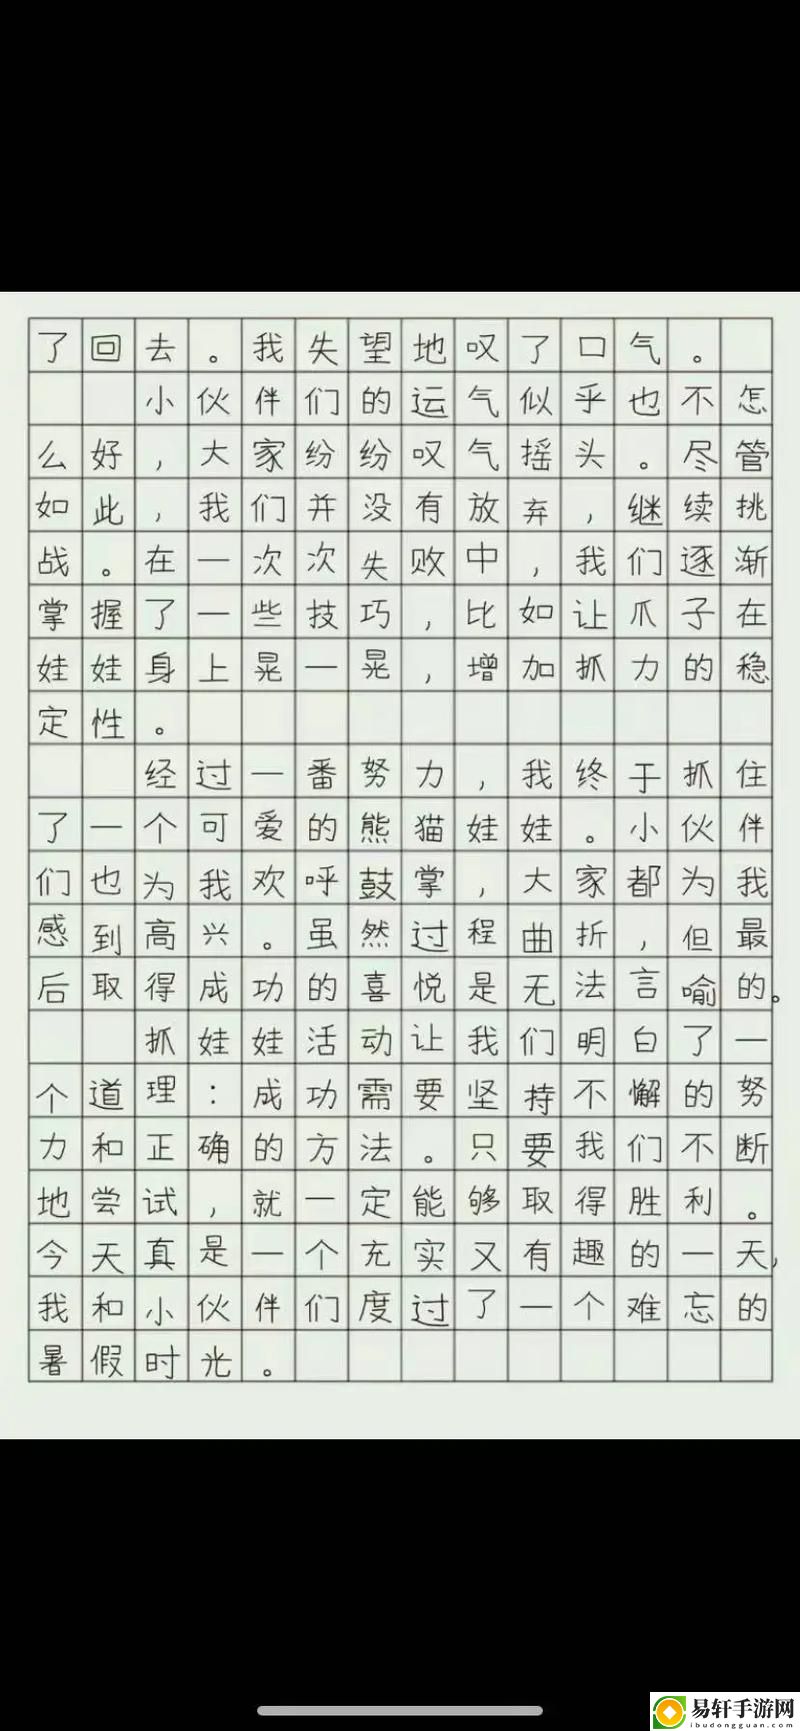 了回去。我失望地叹了口气。
小伙伴们的运气似乎也不怎
么好，大家纷纷叹气摇头。尽管
如此，我们并没有放弃，继续挑
战。在一次次失败中，我们逐渐
掌握了一些技巧，比如让爪子在
娃娃身上晃一晃，增加抓力的稳
定性。
经过一番努力，我终于抓住
了一个可爱的熊猫娃娃。小伙伴
们也为我欢呼鼓掌，大家都为我
感到高兴。虽然过程曲折，但最
后取得成功的喜悦是无法言喻的。
抓娃娃活动让我们明白了一
个道理：成功需要坚持不懈的努
力和正确的方法。只要我们不断
地尝试，就一定能够取得胜利。
今天真是一个充实又有趣的一天，
我和小伙伴们度过了一个难忘的
暑假时光。
易轩手游网
ibudongguan.com